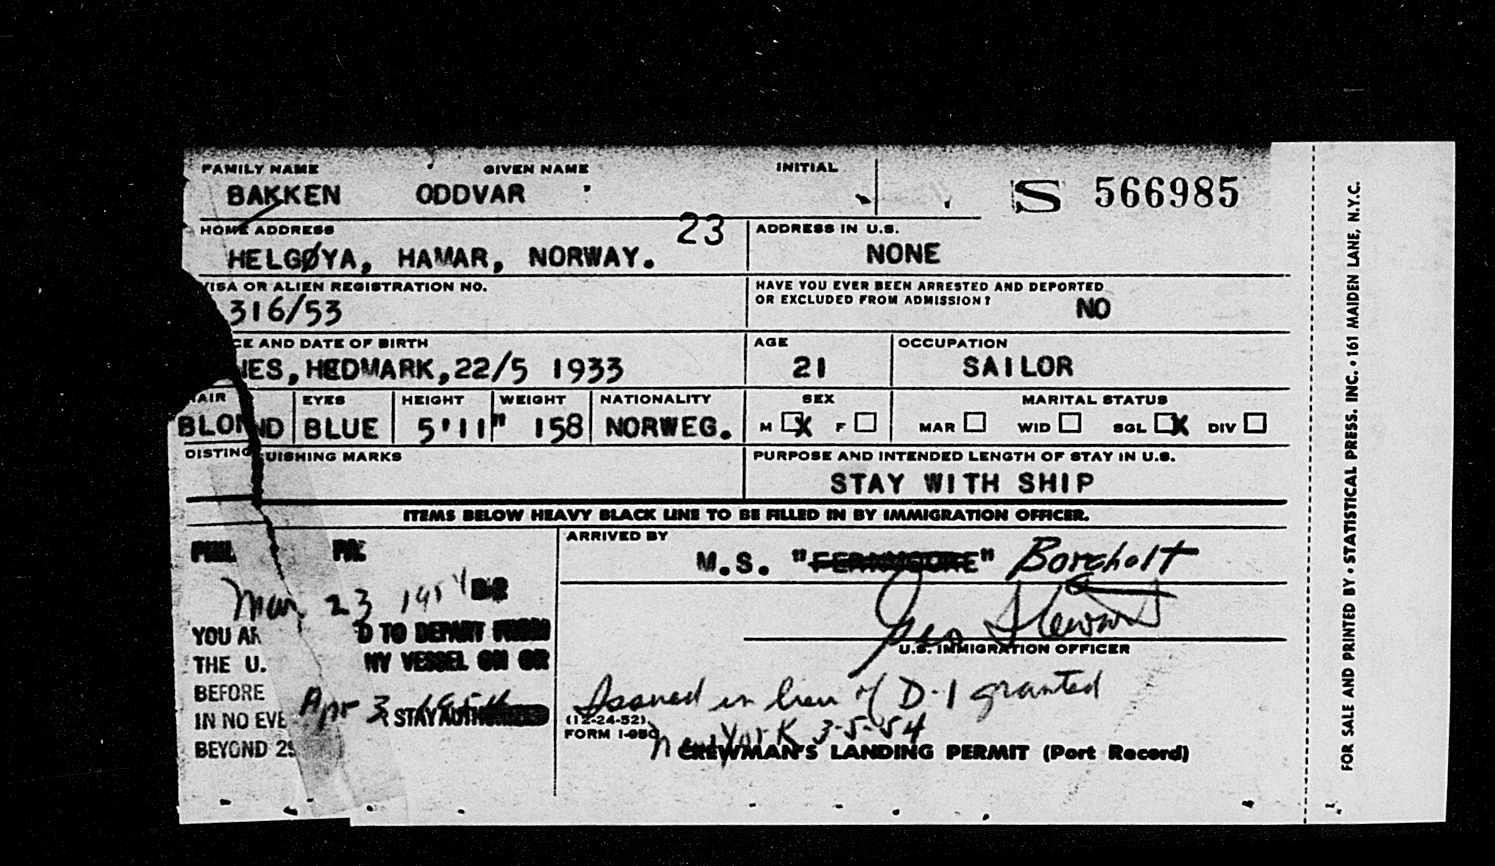 FAMILY NAME GIVEN NAME INITIAL
BAKKEN ODDVAR S 566985
HOME ADDRESS 23 ADDRESS IN U.S.
HELGØYA, HAMAR, NORWAY. NONE
VISA OR ALIEN REGISTRATION NO. HAVE YOU EVER BEEN ARRESTED AND DEPORTED
OR EXCLUDED FROM ADMISSION?
316/53 NO
CE AND DATE OF BIRTH AGE OCCUPATION
NES, HEDMARK, 22/5 1933 21 SAILOR
HAIR EYES HEIGHT WEIGHT NATIONALITY SEX MARITAL STATUS
BLOND BLUE 5'11" 158 NORWEG. M X F MAR WID SGL X DIV
DISTINGUISHING MARKS PURPOSE AND INTENDED LENGTH OF STAY IN U.S.
STAY WITH SHIP
ITEMS BELOW HEAVY BLACK LINE TO BE FILLED IN BY IMMIGRATION OFFICER.
ARRIVED BY
PHIL PA.
M.S. "FERNMOORE" Borgholt
Mar. 23 1954
YOU AR D TO DEPART FROM
THE U. NY VESSEL ON OR
BEFORE Apr 3 1954
IN NO EVE STAY AUTHORIZED
BEYOND 29
Geo Stewart
U.S. IMMIGRATION OFFICER
Issued in lieu of D-1 granted
New York 3-5-54
(12-24-52)
FORM I-95C
CREWMAN'S LANDING PERMIT (Port Record)
FOR SALE AND PRINTED BY • STATISTICAL PRESS. INC. • 161 MAIDEN LANE, N.Y.C.